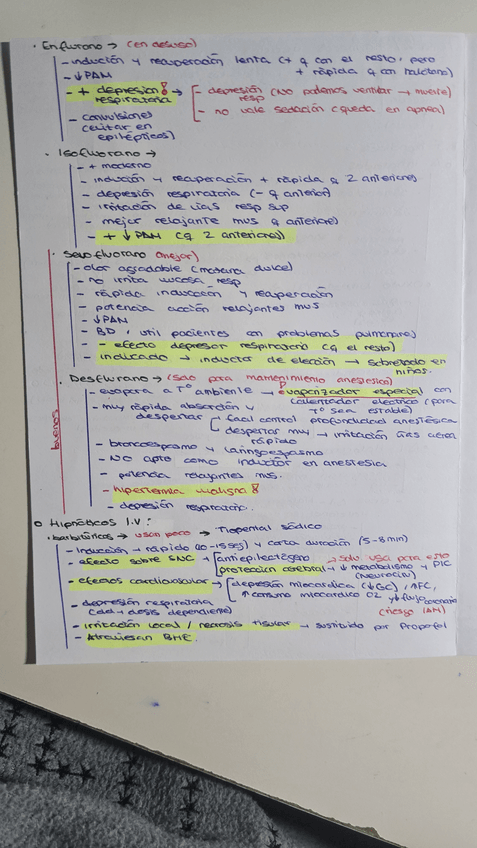 · Enflurano → (en desuso)
- indución y recuperación lenta (+ q con el resto, pero + rápida q con halotano)
- ↓PAM
- + depresión! respiratoria → [- depresión resp (No podemos ventilar → muerte)
- no vale sedación (queda en apnea)
- convulsiones (evitar en epilépticos)
· Isoflurano →
- + moderno
- indución y recuperación + rápida q 2 anteriores
- depresión respiratoria (- q anterior)
- irritación de vías resp sup
- mejor relajante mus q anteriores
- + ↓ PAM (q 2 anteriores)
· Sevoflurano (mejor)
- olor agradable (manzana dulce)
- no irrita mucosa resp
- rápida inducción y recuperación
- potencia acción relajantes mus
- ↓PAM
- BD, util pacientes con problemas pulmonares
- - efecto depresor respiratorio (q el resto)
- indicado → inductor de elección → sobretodo en niños.
buenos
· Desflurano → (solo para mantenimiento anestesico)
- evapora a Tº ambiente → evaporizador especial con calentador electrico (para Tº sea estable)
- muy rápida absorción y despertar
[- facil control profundidad anestésica
despertar muy rápido → irritación vías aerea
- broncoespasmo y laringoespasmo
- NO apto como inductor en anestesia
- potencia relajantes mus.
- hipertermia maligna!
- depresión respiratoria.
o Hipnóticos I.V:
· barbitúricos → usan poco → Tiopental sódico
- Inducción → rápido (10-15 seg) y corta duración (5-8min)
- efecto sobre SNC → [antiepileptógeno → solo usa para esto
protección cerebral → ↓ metabolismo y PIC (neurocir)
- efectos cardiovascular → [depresión miocardica (↓GC), ↑FC,
↑ consumo miocardico O2 y ↓ flujo coronario (riesgo IAM)
- depresión respiratoria (ad + dosis dependiente)
- irritación local / necrosis tisular → sustituido por Propofol
- Atraviesan BHE.